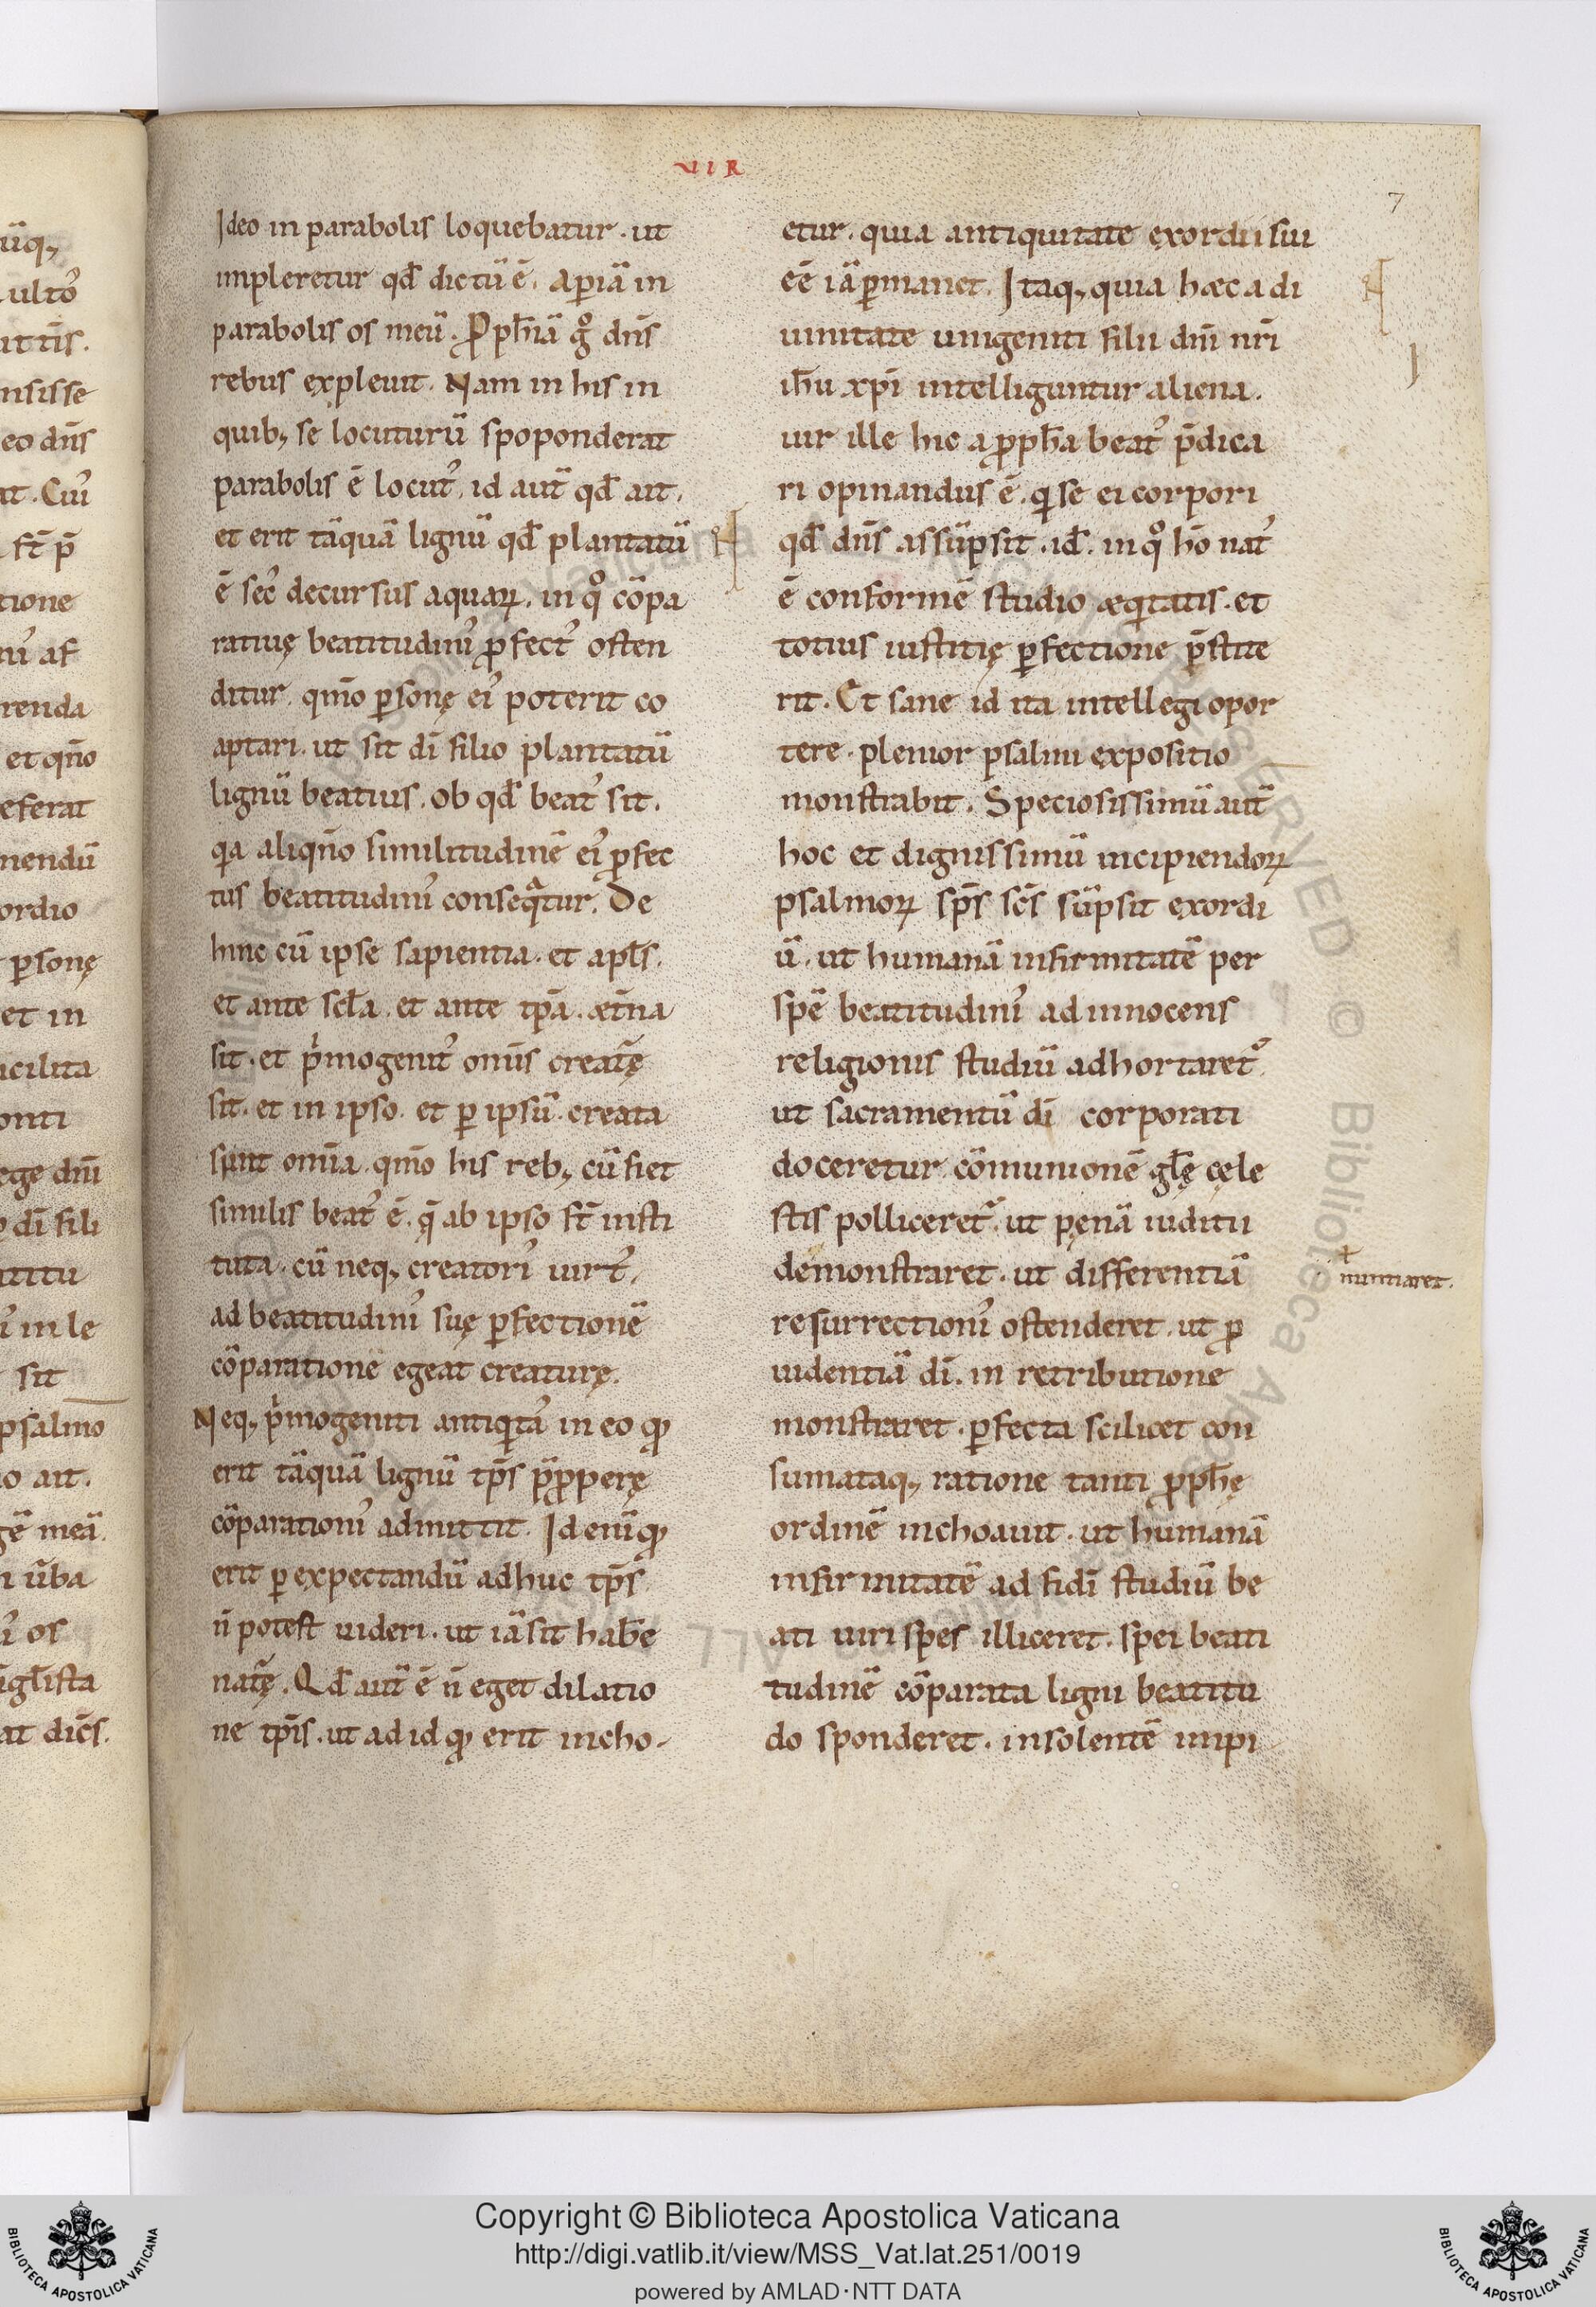 VIR
7
Ideo in parabolis loquebatur. ut
impleretur qđ dictū ē. Aꝑiā in
parabolis os meū. ꝓph̄iā gͦ dn̄s
rebus expleuit. Nam in his in
quibꝫ se locuturū spoponderat
parabolis ē locutꝰ. id aut̄ qđ ait.
et erit tāquā lignū qđ plantatū
ē sec̄ decursus aquaꝝ. in qͦ cōpa
ratiuę beatitudinꝰ ꝓfectꝰ osten
ditur. qm̄o ꝑsonę eiꝰ poterit co
aptari. ut sit dī filio plantatū
lignū beatius. ob qđ beatꝰ sit.
qa aliqn̄o similitudinē eiꝰ ꝓfec
tus beatitudinꝰ conseqᵃtur. De
hinc cū ipse sapientia. et apl̄s.
et ante scl̄a. et ante tp̄a. æt̄na
sit. et pͥmogenitꝰ omīs creat̄ę
sit. et in ipso. et ꝑ ipsū creata
sunt omīa. qm̄o his rebꝫ cū fiet
similis beatꝰ ē. q̄ ab ipso st̄ insti
tuta. cū neqꝫ creatorꝰ uirtꝰ.
ad beatitudinꝰ suę ꝑfectionē
cōparatione egeat creaturę.
Neqꝫ pͥmogeniti antiqͥtaꝰ in eo qꝫ
erit tāquā lignū tp̄s p̄ꝓperę
cōparationꝰ admittit. Id enī qꝫ
erit ꝑ expectandū adhuc tp̄s
n̄ potest uideri. ut iā sit hab̄e
nat̄ę. Qđ aut̄ ē n̄ eget dilatio
ne tp̄is. ut ad id qꝫ erit incho-
etur. quia antiquitate exordii sui
eē iā ꝑmanet. Itaqꝫ quia hæc a di
uinitate unigeniti filii dn̄i nr̄i
ih̄u xp̄i intelliguntur aliena.
uir ille hic a ꝓph̄a beatꝰ p̄dica
ri opinandus ē. qͥ se ei corpori
qđ dn̄s assūpsit. id̄. in qͦ hō natꝰ
ē conformē studio æqͥtatis. et
totius iustitię ꝑfectione p̄stite
rit. Et sane id ita intellegi opor
tere. plenior psalmi expositio
monstrabit. Speciosissimū aut̄
hoc et dignissimū incipiendoꝝ
psalmoꝝ sp̄s sc̄s sūpsit exordi
ū. ut humanā infirmitatē per
spē beatitudinꝰ ad innocens
religionis studiū adhortaret᷑.
ut sacramentū dī corporati
doceretur cōmunionē gl̄ę cęle
stis polliceret᷑. ut pęnā iuditii
demonstraret. ut differentiā
ł nuntiaret.
resurrectionꝰ ostenderet. ut ꝓ
uidentiā dī. in retributione
monstraret. ꝑfecta scilicet con
sumataqꝫ ratione tanti ꝓph̄ę
ordinē inchoauit. ut humanā
infirmitatē ad fidī studiū be
ati uiri spes illiceret. spei beati
tudinē cōparata ligni beatitu
do sponderet. insolentē impi
Copyright © Biblioteca Apostolica Vaticana
http://digi.vatlib.it/view/MSS_Vat.lat.251/0019
powered by AMLAD·NTT DATA